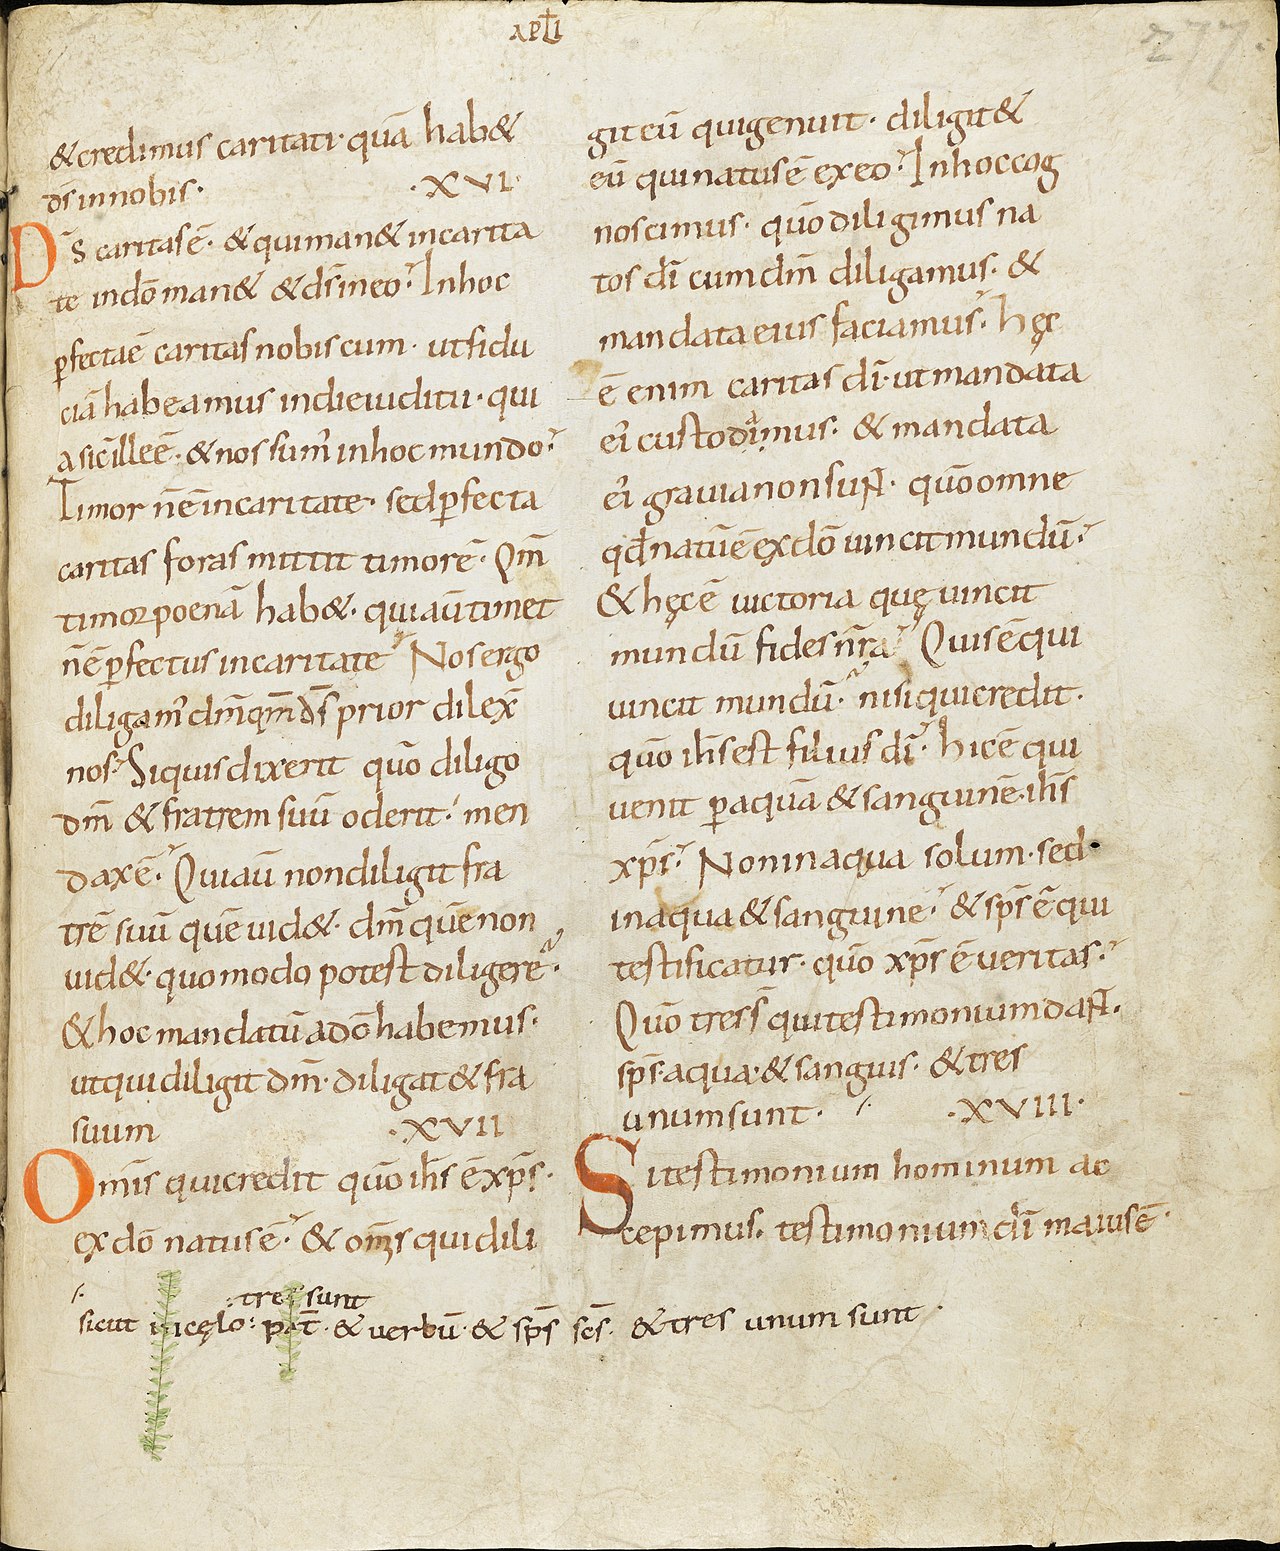 APLI
277.
& credimus caritati· quā hab&
dī innobis· ·XVI·
D̄S caritasē· & quiman& incarita
te indō man& & dsīneo· Inhoc
pfectaē caritas nobiscum· utfidu
ciā habeamus indieiuditii· qui
asic̄illeē· & nos sum' inhoc mundo·
Timor nēincaritate· sedpfecta
caritas foras mittit timorē· Qm̄
timor poenā hab&· quiaūtimet
nēpfectus incaritate Nosergo
diligam' dm̄qm̄ds̄ prior dilex̄
nos· Siquisdixerit quō diligo
dm̄ & fratrem suū oderit· men
daxē· Quiaū nondiligit fra
trē suū quē uid&· dm̄ quēnon
uid&· quomodo potest diligere·
& hoc mandatū adōhabemus·
utquidiligit dm̄· diligat & fra
suum ·XVII
Omīs quicredit quō ihs̄ ēxp̄s·
exdō natusē· & om̄s quidili
git eū quigenuit· diligit &
eū quinatusē exeo· Inhoccog
noscimus· quō diligimus na
tos dī cumdm̄ diligamus· &
mandata eius faciamus· hęc
ē enim caritas dī· ut mandata
ei' custodiamus· & mandata
ei' grauianonsunt· quōomne
qd̄natūēexdō uincitmundū·
& hęcē uictoria quę uincit
mundū fides nr̄a Quisēqui
uincit mundū· nisiquicredit·
quō ihs̄est filius dī· hicē qui
uenit paquā & sanguinē· ihs̄
xp̄s· Noninaqua solum· sed·
inaqua & sanguine· & sp̄s ē qui
testificatur· quō xp̄s ē ueritas·
Quō tres s̄ quitestimoniumdant·
sp̄s· aqua· & sanguis· & tres
unumsunt· ·XVIII·
Sitestimonium hominum ac
cepimus· testimonium dī maiusē·
tres sunt
sicut incęlo: pat̄· & uerbū· & sp̄s sc̄s· & tres unum sunt·